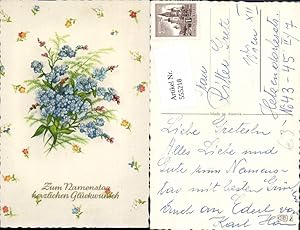 Zum Namenstag
herzlichen Glückwunsch
Artikel Nr.
555218
Frau
Ritter Grete
Wien XII
Hetzendorferstr.
1843-45 II/7
Liebe Greterln
Alles Liebe und
Gute zum Namens-
tag mit besten Grüßen
auch an Edert von
Karl